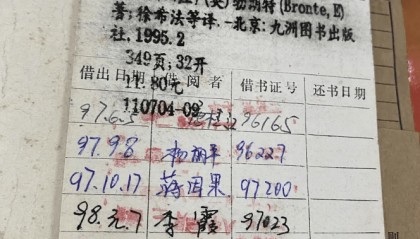 (英)勃朗特(Bronte,E)
著;徐希法等译.-北京:九洲图书出版
社,1995.2
349页;32开
借出日期 借阅者 借书证号 还书日期
11.80元
110704-09
97.6.5 96165
97.9.8 96227
97.10.17 蒋国果 97200
98.元.7 李霞 97023